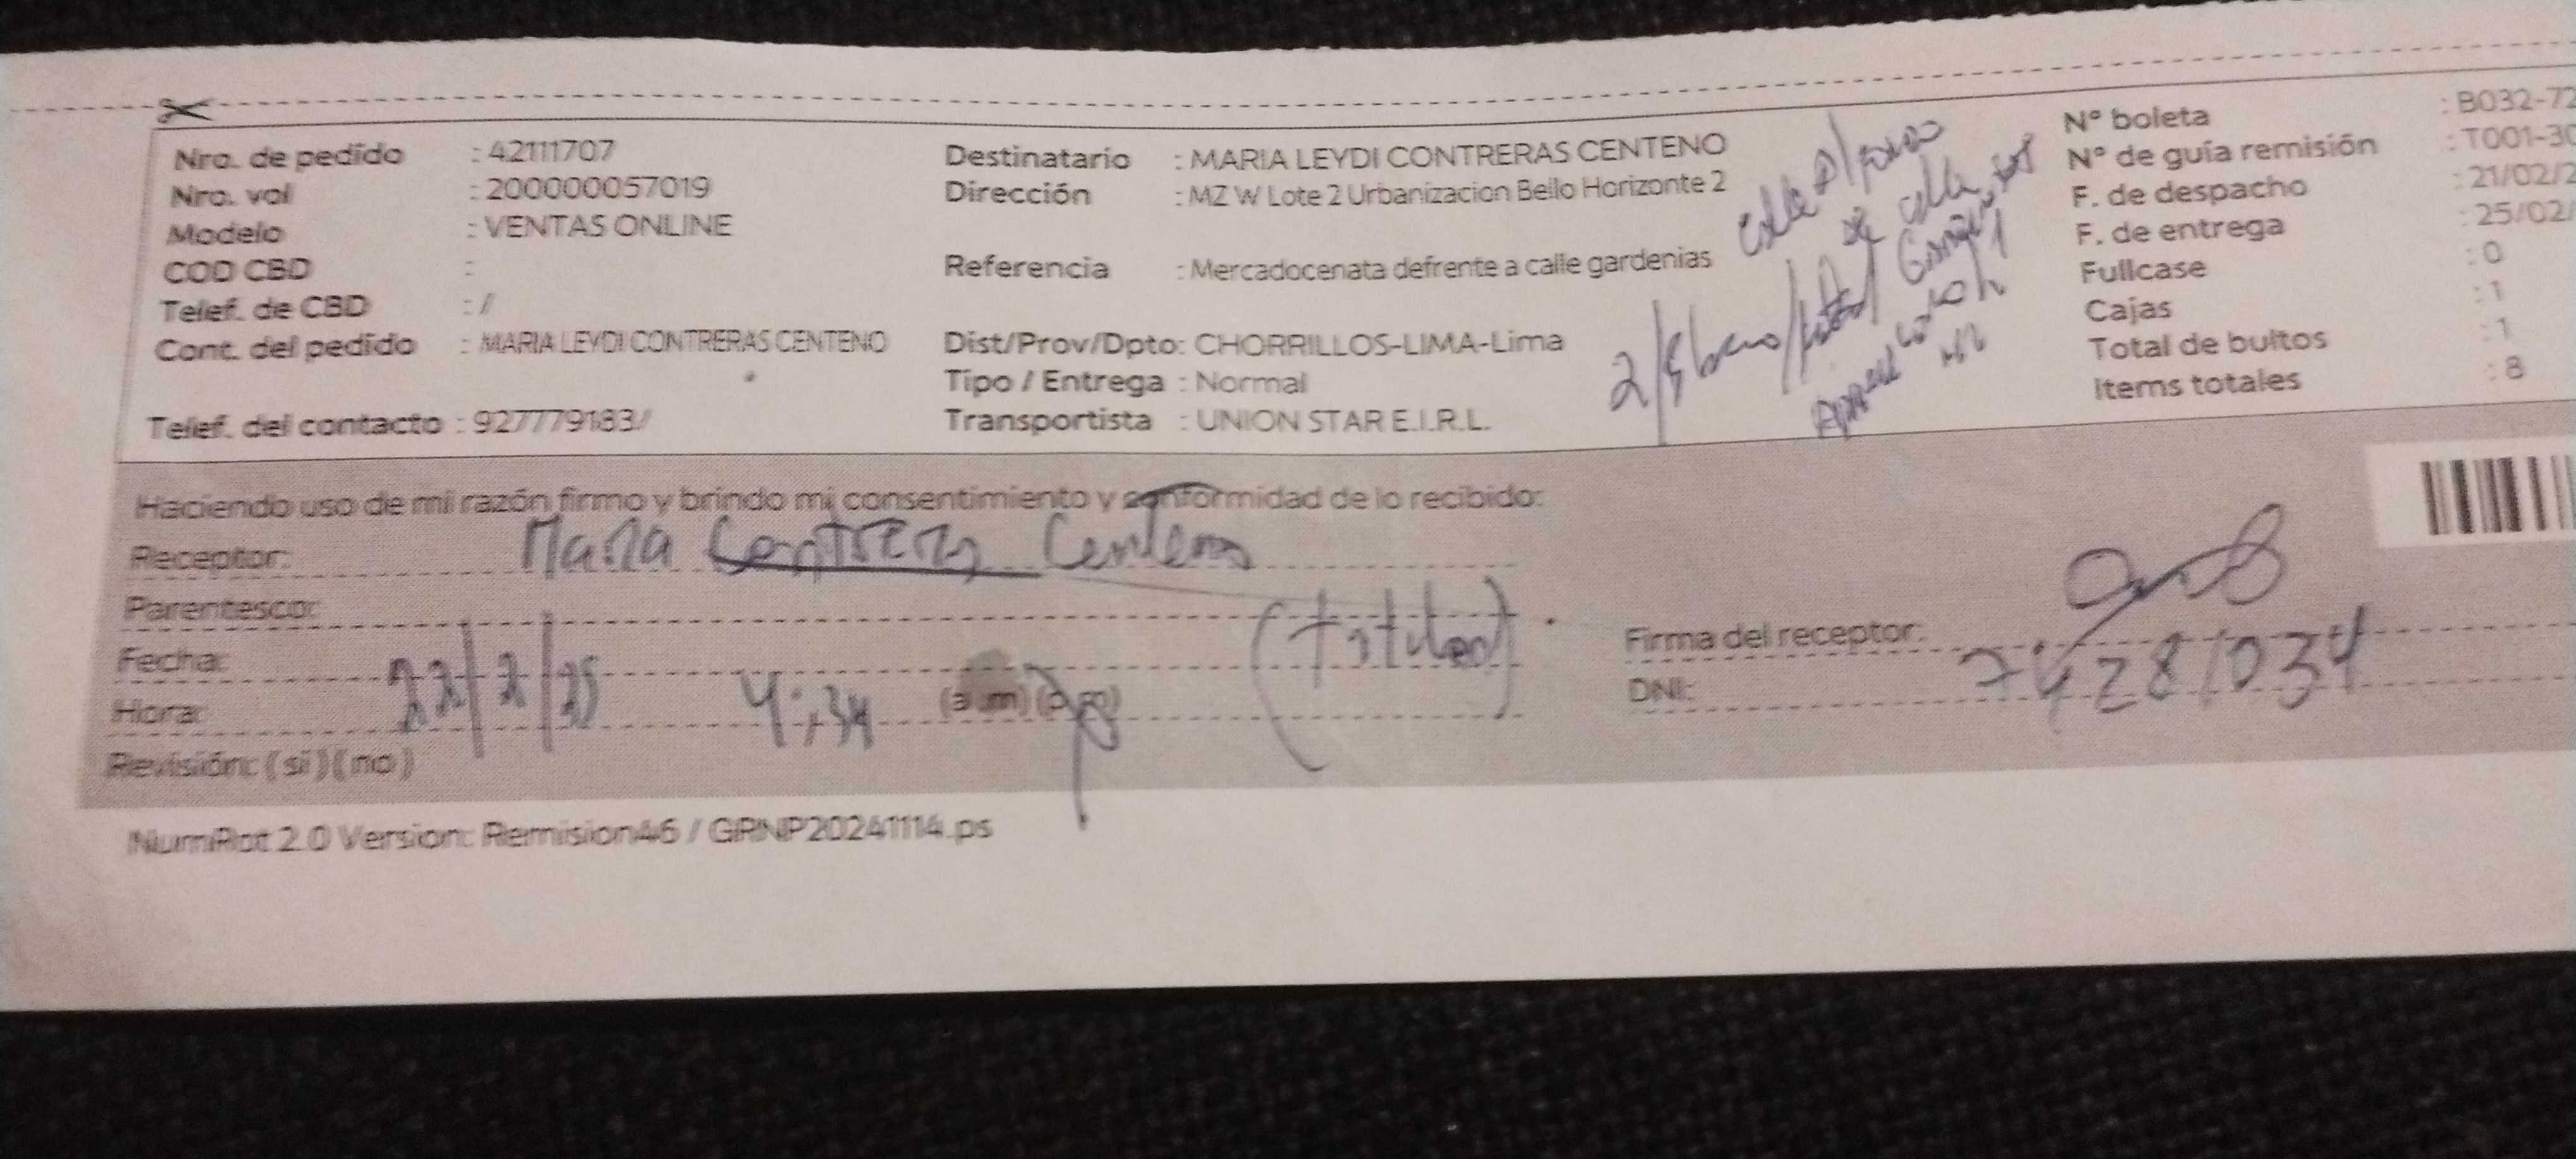 Nro. de pedido : 42111707
Nro. val : 200000057019
Modelo : VENTAS ONLINE
COD CBD :
Telef. de CBD : /
Cont. del pedido : MARIA LEYDI CONTRERAS CENTENO
Telef. del contacto : 927779183/
Destinatario : MARIA LEYDI CONTRERAS CENTENO
Dirección : MZ W Lote 2 Urbanizacion Bello Horizonte 2
Referencia : Mercadocenata defrente a calle gardenias
Dist/Prov/Dpto: CHORRILLOS-LIMA-Lima
Tipo / Entrega : Normal
Transportista : UNION STAR E.I.R.L.
calle
de calle
Nº boleta : B032-72
Nº de guía remisión : T001-30
F. de despacho : 21/02/2
F. de entrega : 25/02/
Fullcase : 0
Cajas : 1
Total de bultos : 1
Items totales : 8
Haciendo uso de mi razón firmo y brindo mi consentimiento y conformidad de lo recibido:
Receptor: Maria Contreras Centeno
Parentesco: (titular)
Fecha: 22/2/25
Hora: 4:34 (a m) (p m)
Revisión: ( si ) ( no )
Firma del receptor:
DNI: 74281034
NumRot 2.0 Version: Remision46 / GRNP20241114.ps